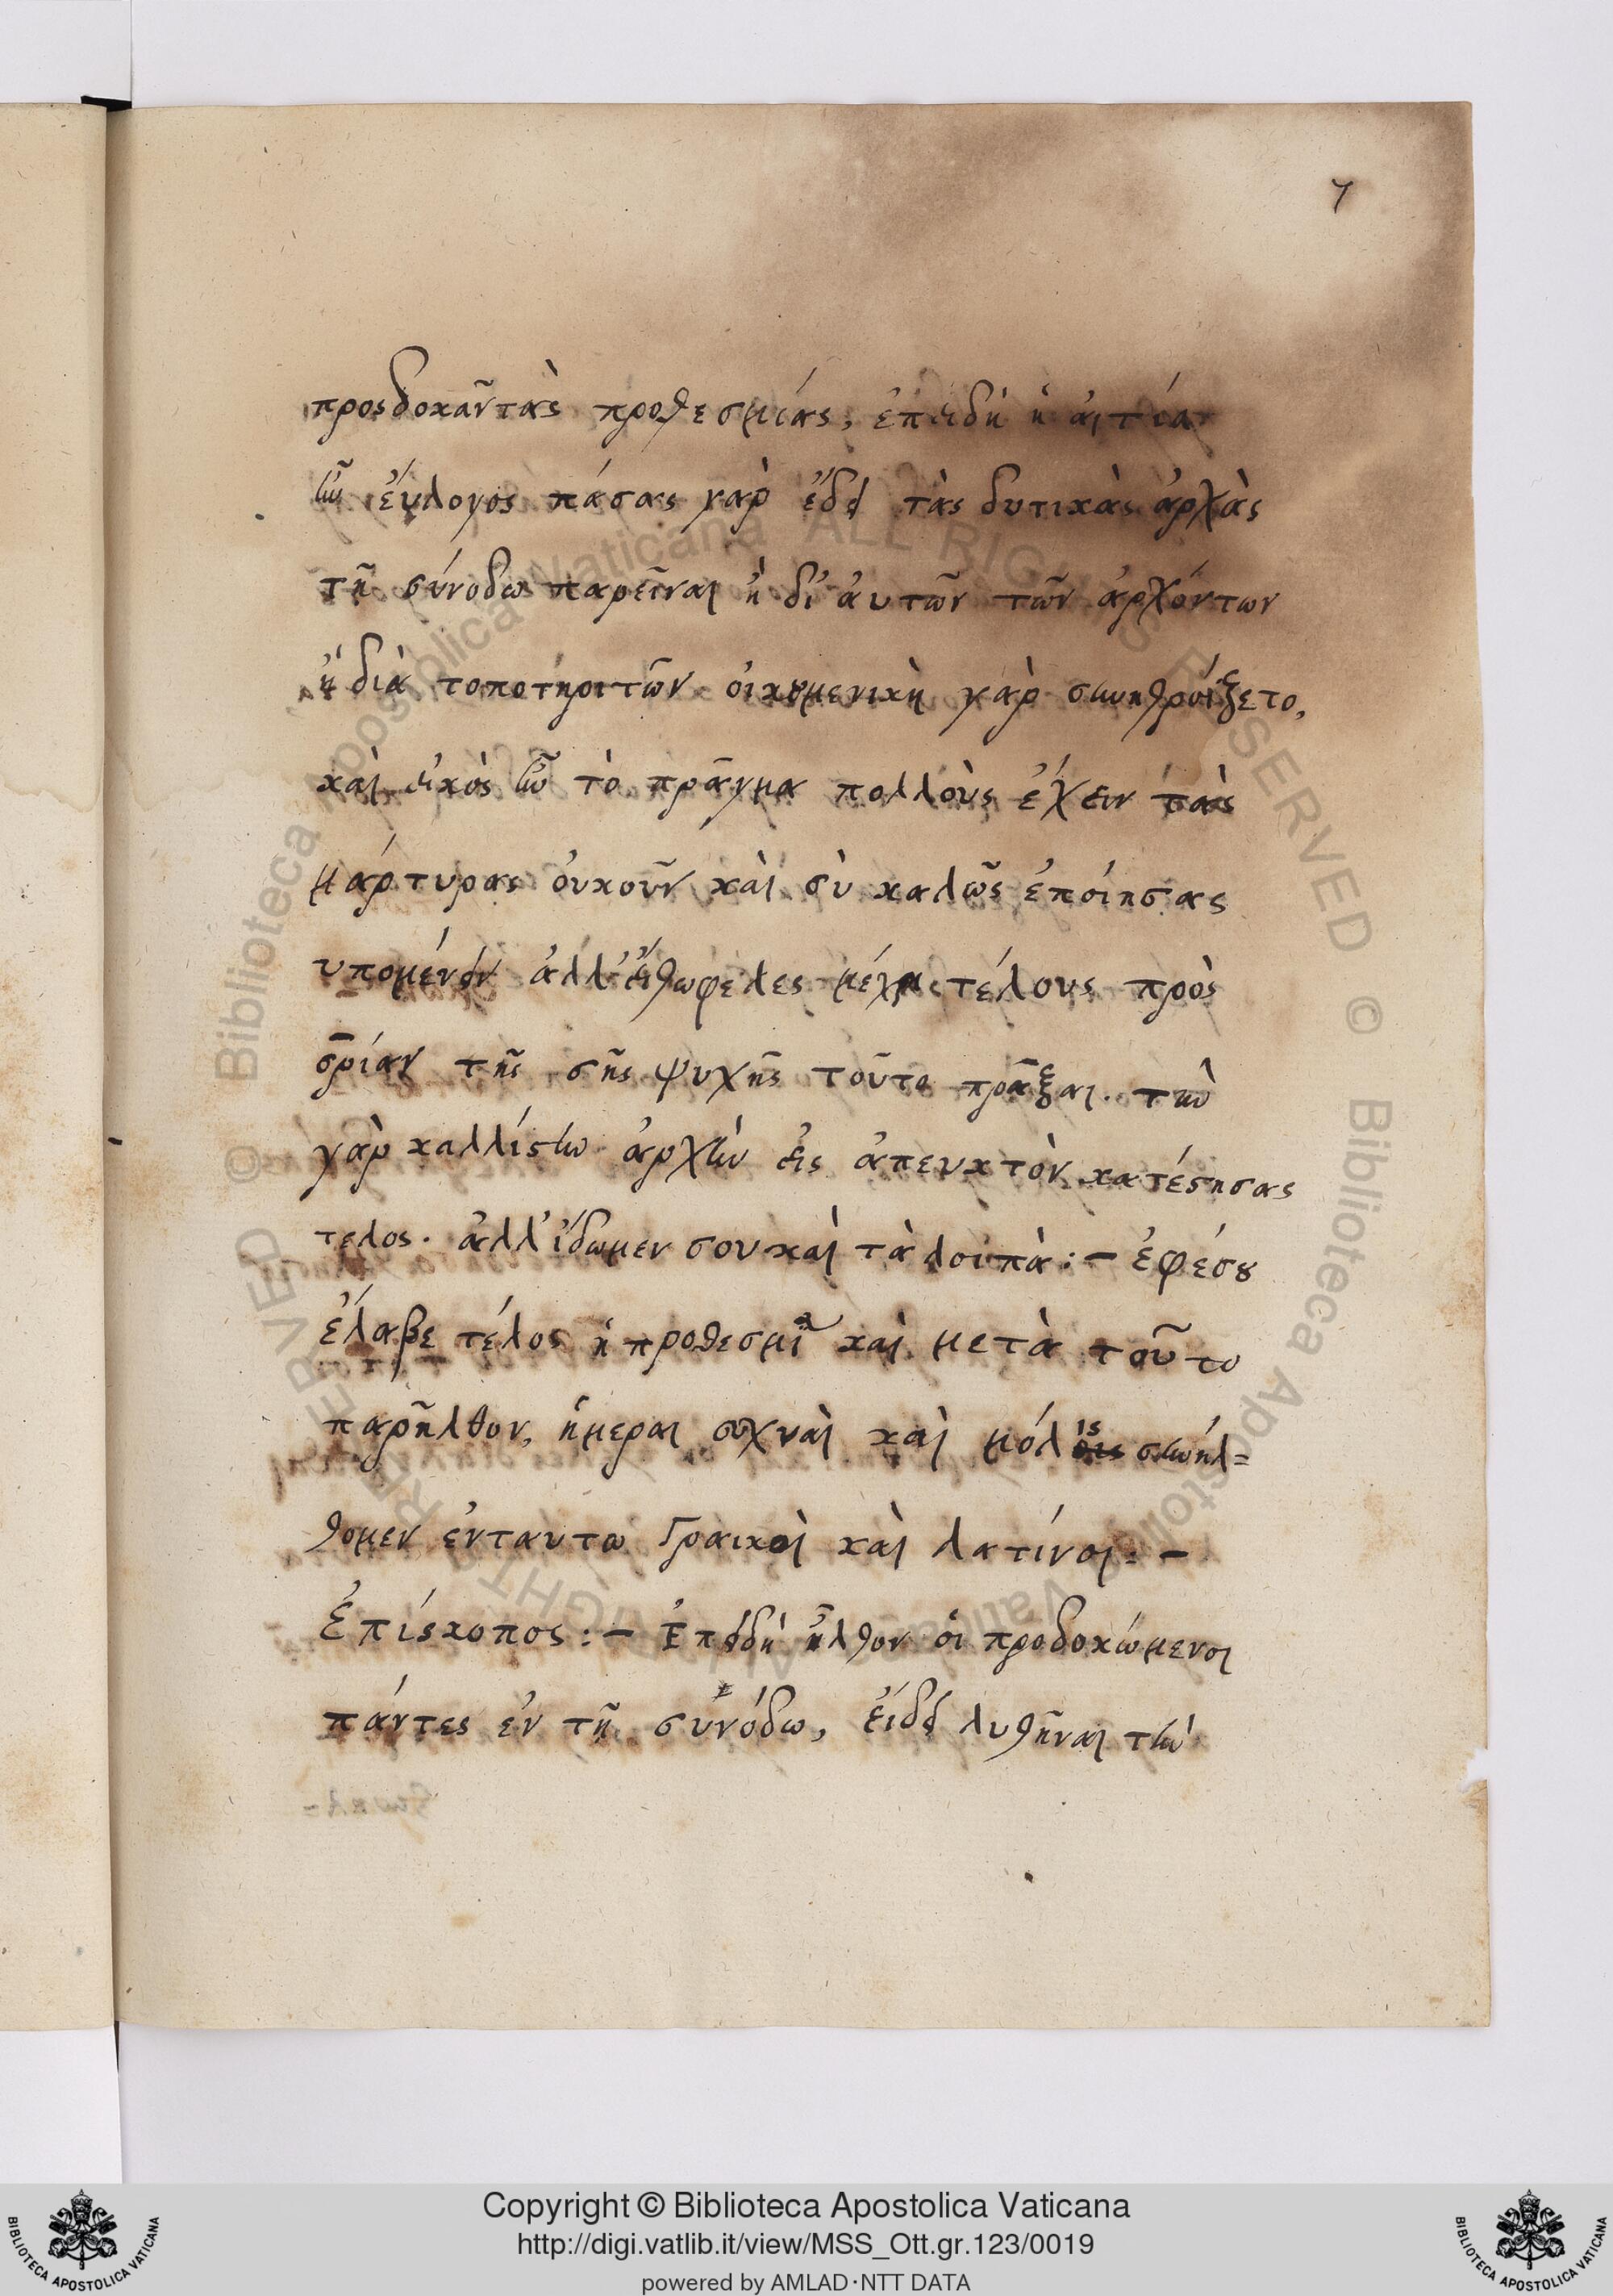 7
προσδοκᾶν τὰς προθεσμίας, ἐπειδὴ ἡ αἰτία
ἦν ἐύλογος πάσας γαρ ἔδει τὰς δυτικὰς ἀρχὰς
τῆ συνόδω παρεῖναι ἢ δι' ἀυτῶν τῶν ἀρχόντων
ἢ διὰ τοποτηριτῶν οἰκουμενικὴ γὰρ συνηθροίζετο,
καὶ εἰκὸς ἦν τὸ πρᾶγμα πολλοὺς ἔχειν τὰς
μάρτυρας ὀυκοῦν καὶ σὺ καλῶς ἐποίησας
υπομένων ἀλλ' εἴθ' ὤφελες μέχρι τέλους πρὸς
σρίαν τῆς σῆς ψυχῆς τοῦτο πρᾶξαι. τὴν
γὰρ καλλίστην ἀρχὴν εἰς ἀπευκτὸν κατέστησας
τελος. ἀλλ' ἴδωμεν σου καὶ τὰ λοιπὰ:- ἐφέσου
ἔλαβε τέλος ἡ προθεσμία καὶ μετὰ τοῦτο
παρῆλθον, ἡμεραι συχναὶ καὶ μόλις συνήλ=
θομεν ἐνταυτω Γραικοὶ καὶ λατίνοι:-
ἐπίσκοπος:- Ἐπειδὴ ἦλθον οἱ προδοκώμενοι
πάντες ἐν τῆ συνόδω, ἔιδει λυθῆναι τὴν
Copyright © Biblioteca Apostolica Vaticana
http://digi.vatlib.it/view/MSS_Ott.gr.123/0019
powered by AMLAD·NTT DATA
BIBLIOTECA APOSTOLICA VATICANA
BIBLIOTECA APOSTOLICA VATICANA
© Biblioteca Apostolica Vaticana ALL RIGHTS RESERVED
© Biblioteca Apostolica Vaticana ALL RIGHTS RESERVED